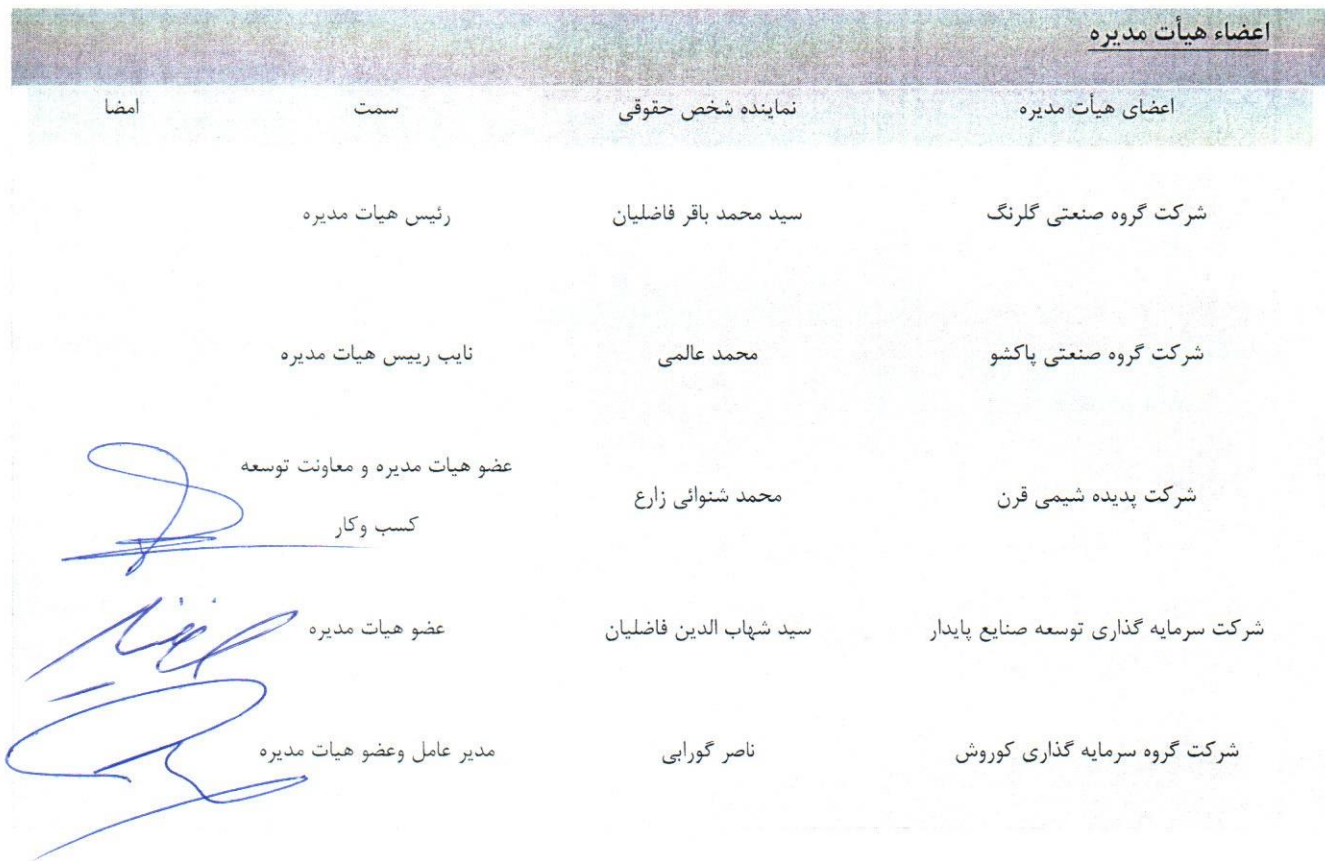 اعضاء هیأت مدیره
اعضای هیأت مدیره نماینده شخص حقوقی سمت امضا
شرکت گروه صنعتی گلرنگ سید محمد باقر فاضلیان رئیس هیات مدیره
شرکت گروه صنعتی پاکشو محمد عالمی نایب رییس هیات مدیره
شرکت پدیده شیمی قرن محمد شنوائی زارع عضو هیات مدیره و معاونت توسعه
کسب وکار
شرکت سرمایه گذاری توسعه صنایع پایدار سید شهاب الدین فاضلیان عضو هیات مدیره
شرکت گروه سرمایه گذاری کوروش ناصر گورابی مدیر عامل وعضو هیات مدیره